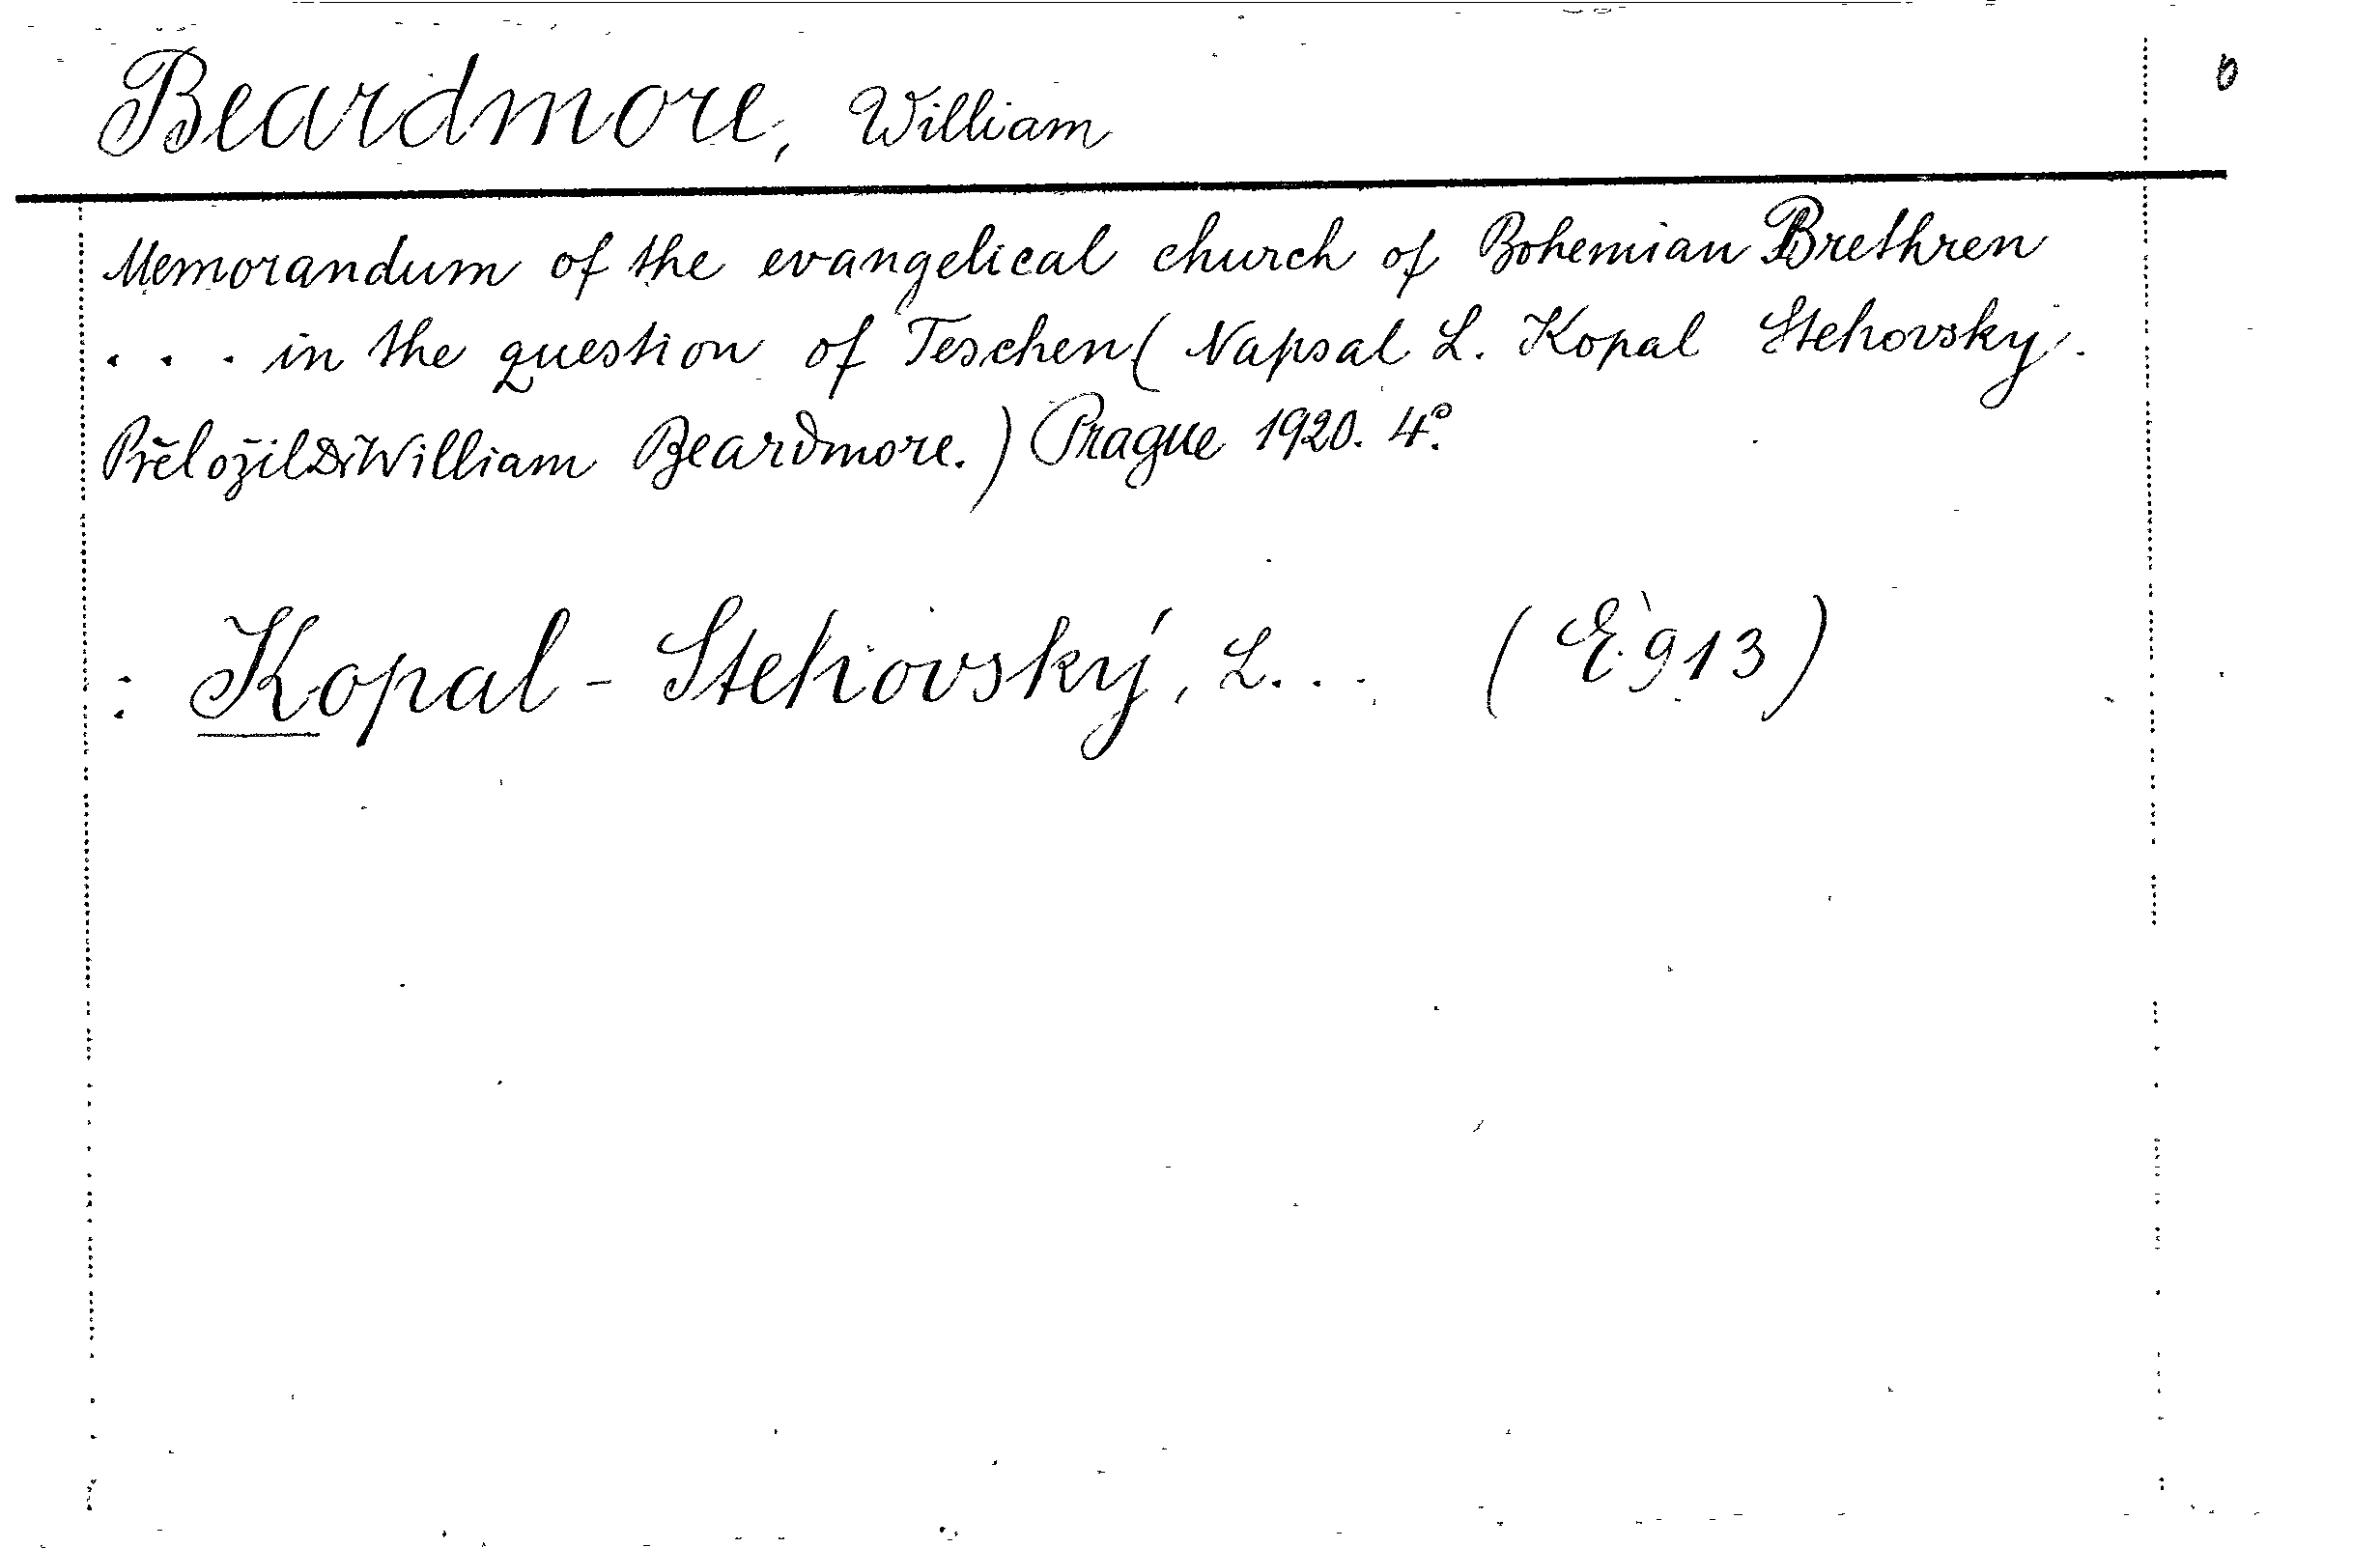 Beardmore, William
Memorandum of the evangelical church of Bohemian Brethren
... in the question of Teschen (Napsal L. Kopal Stehovský.
Přeložil Dr William Beardmore.) Prague 1920. 4°.
: Kopal - Stehovský, L... (E 913)